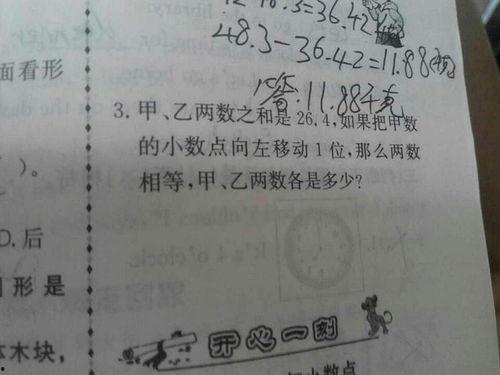 48.3-36.42=11.88
答:11.88千克
面看形
3. 甲、乙两数之和是 26.4,如果把甲数
的小数点向左移动 1 位,那么两数
相等,甲、乙两数各是多少?
)。
D. 后
形是
木块,
开心一刻